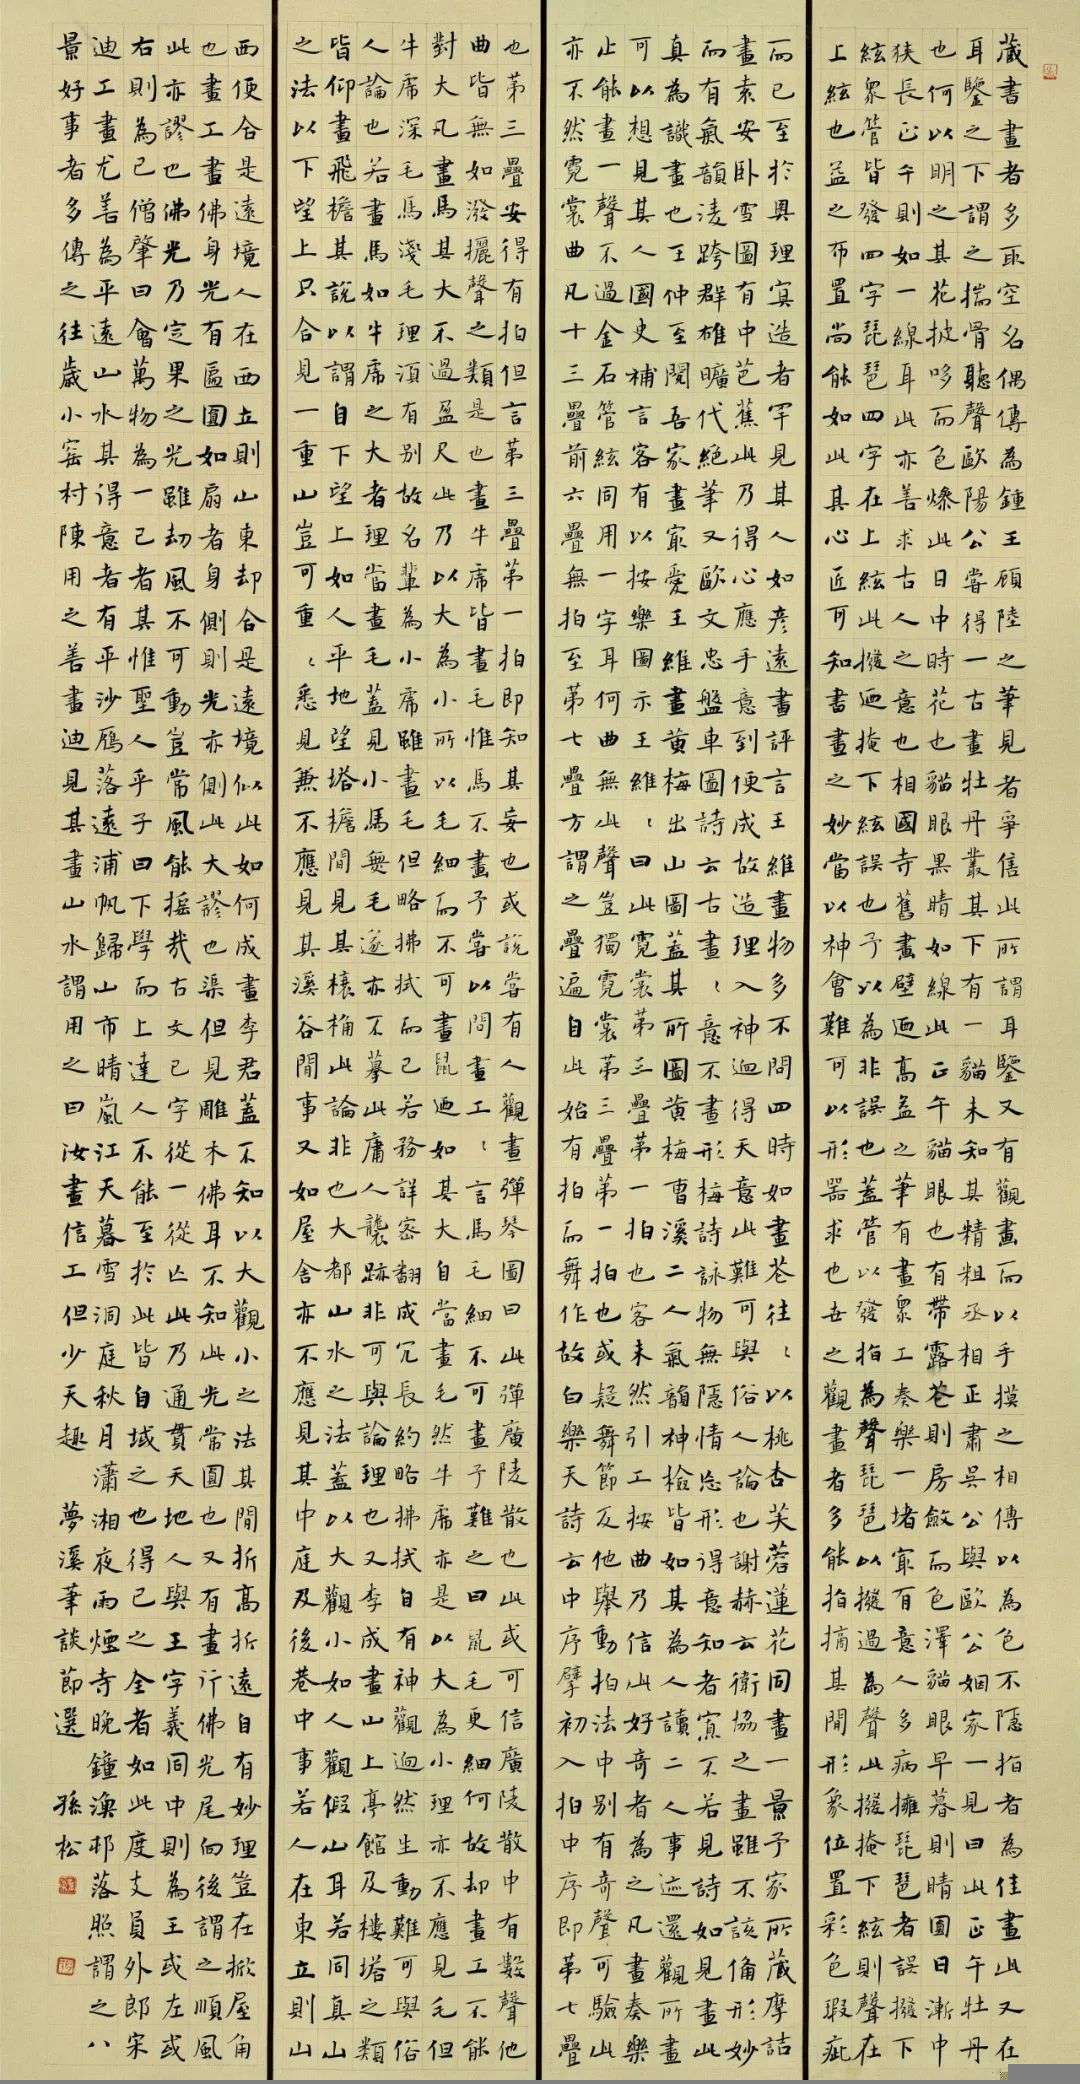 藏書畫者多取空名偶傳為鍾王顧陸之筆見者爭售此所謂耳鑒又有觀畫而以手摸之相傳以為色不隱指者為佳畫此又在
耳鑒之下謂之揣骨聽聲歐陽公嘗得一古畫牡丹叢其下有一貓未知其精粗丞相正肅吳公與歐公姻家一見曰此正午牡丹
也何以明之其花披哆而色燥此日中時花也貓眼黑睛如線此正午貓眼也有帶露花則房斂而色澤貓眼早暮則睛圓日漸中
狹長正午則如一線耳此亦善求古人之意也相國寺舊畫壁迺高益之筆有畫眾工奏樂一堵最有意人多病擁琵琶者誤撥下
絃眾管皆發四字琵琶四字在上絃此撥迺掩下絃誤也予以為非誤也蓋管以發指為聲琵琶以撥過為聲此撥掩下絃則聲在
上絃也益之布置尚能如此其心匠可知書畫之妙當以神會難可以形器求也世之觀畫者多能指摘其間形象位置彩色瑕疵
而已至於奧理冥造者罕見其人如彥遠畫評言王維畫物多不問四時如畫花往〻以桃杏芙蓉蓮花同畫一景予家所藏摩詰
畫袁安卧雪圖有中芭蕉此乃得心應手意到便成故造理入神迥得天意此難可與俗人論也謝赫云衛協之畫雖不該備形妙
而有氣韻凌跨群雄曠代絕筆又歐文忠盤車圖詩云古畫〻意不畫形梅詩詠物無隱情忘形得意知者寡不若見詩如見畫此
真為識畫也王仲至閱吾家畫最愛王維畫黃梅出山圖蓋其所圖黃梅曹溪二人氣韻神檢皆如其為人讀二人事迹還觀所畫
可以想見其人國史補言客有以按樂圖示王維〻曰此霓裳第三疊第一拍也客未然引工按曲乃信此好奇者為之凡畫奏樂
止能畫一聲不過金石管絃同用一字耳何曲無此聲豈獨霓裳第三疊第一拍也或疑舞節及他舉動拍法中別有奇聲可驗此
亦不然霓裳曲凡十三疊前六疊無拍至第七疊方謂之疊遍自此始有拍而舞作故白樂天詩云中序擘初入拍中序即第七疊
也第三疊安得有拍但言第三疊第一拍即知其妄也或說嘗有人觀畫彈琴圖曰此彈廣陵散也此或可信廣陵散中有數聲他
曲皆無如潑攞聲之類是也畫牛虎皆畫毛惟馬不畫予嘗以問畫工〻言馬毛細不可畫予難之曰鼠毛更細何故却畫工不能
對大凡畫馬其大不過盈尺此乃以大為小所以毛細而不可畫鼠迺如其大自當畫毛然牛虎亦是以大為小理亦不應見毛但
牛虎深毛馬淺毛理須有別故名輩為小虎雖畫毛但略拂拭而已若務詳密翻成冗長約略拂拭自有神觀迥然生動難可與俗
人論也若畫馬如牛虎之大者理當畫毛蓋見小馬無毛遂亦不摹此庸人襲跡非可與論理也又李成畫山上亭館及樓塔之類
皆仰畫飛檐其說以謂自下望上如人平地望塔檐間見其榱桷此論非也大都山水之法蓋以大觀小如人觀假山耳若同真山
之法以下望上只合見一重山豈可重〻悉見兼不應見其溪谷間事又如屋舍亦不應見其中庭及後巷中事若人在東立則山
西便合是遠境人在西立則山東却合是遠境似此如何成畫李君蓋不知以大觀小之法其間折高折遠自有妙理豈在掀屋角
也畫工畫佛身光有匾圓如扇者身側則光亦側此大謬也渠但見雕木佛耳不知此光常圓也又有畫行佛光尾向後謂之順風
此亦謬也佛光乃定果之光雖劫風不可動豈常風能搖哉古文己字從一從亡此乃通貫天地人與王字義同中則為王或左或
右則為己僧肇曰會萬物為一己者其惟聖人乎子曰下學而上達人不能至於此皆自域之也得己之全者如此度支員外郎宋
迪工畫尤善為平遠山水其得意者有平沙鴈落遠浦帆歸山市晴嵐江天暮雪洞庭秋月瀟湘夜雨煙寺晚鐘漁邨落照謂之八
景好事者多傳之往歲小窑村陳用之善畫迪見其畫山水謂用之曰汝畫信工但少天趣 夢溪筆談節選 孫松